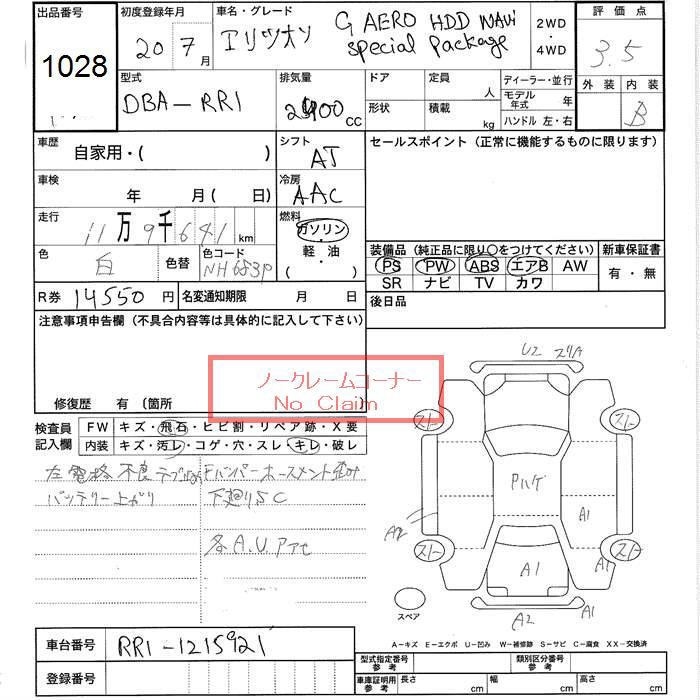 出品番号 初度登録年月 車名・グレード 2WD ・ 4WD 評価点
1028 20 7月 エリツオン G AERO HDD NAVI special package 3.5
型式 排気量 ドア 定員 人 ディーラー・並行 外装 内装
DBA-RR1 2400cc 形状 積載 kg モデル年式 年 ハンドル 左・右 B
車歴 自家用・( ) シフト AT セールスポイント (正常に機能するものに限ります)
車検 年 月( 日) 冷房 AAC
走行 11万9千641km 燃料 ガソリン
色 白 色替 色コード NH653P 軽・油 ( )
装備品 (純正品に限り○をつけてください) 新車保証書
PS PW ABS エアB AW 有・無
SR ナビ TV カワ
R券 14550円 名変通知期限 月 日 後日品
注意事項申告欄 (不具合内容等は具体的に記入して下さい)
ノークレームコーナー
No Claim
修復歴 有 (箇所
検査員記入欄 FW キズ・飛石・ヒビ割・リペア跡・X要
内装 キズ・汚レ・コゲ・穴・スレ・キレ・破レ
左電格不良 Fバンパーホースメント歪み
バッテリー上がり 下廻りSC
各A.U.アアセ
U2 スリA
スレ スレ
Pハゲ
A2 A1
スレ スレ
A1 A1
A2
スペア
A-キズ E-エクボ U-凹み W-補修跡 S-サビ C-腐食 XX-交換済
車台番号 RR1-1215921
登録番号
型式指定番号参考 類別区分番号参考
車庫証明用参考 長さ cm 幅 cm 高さ cm